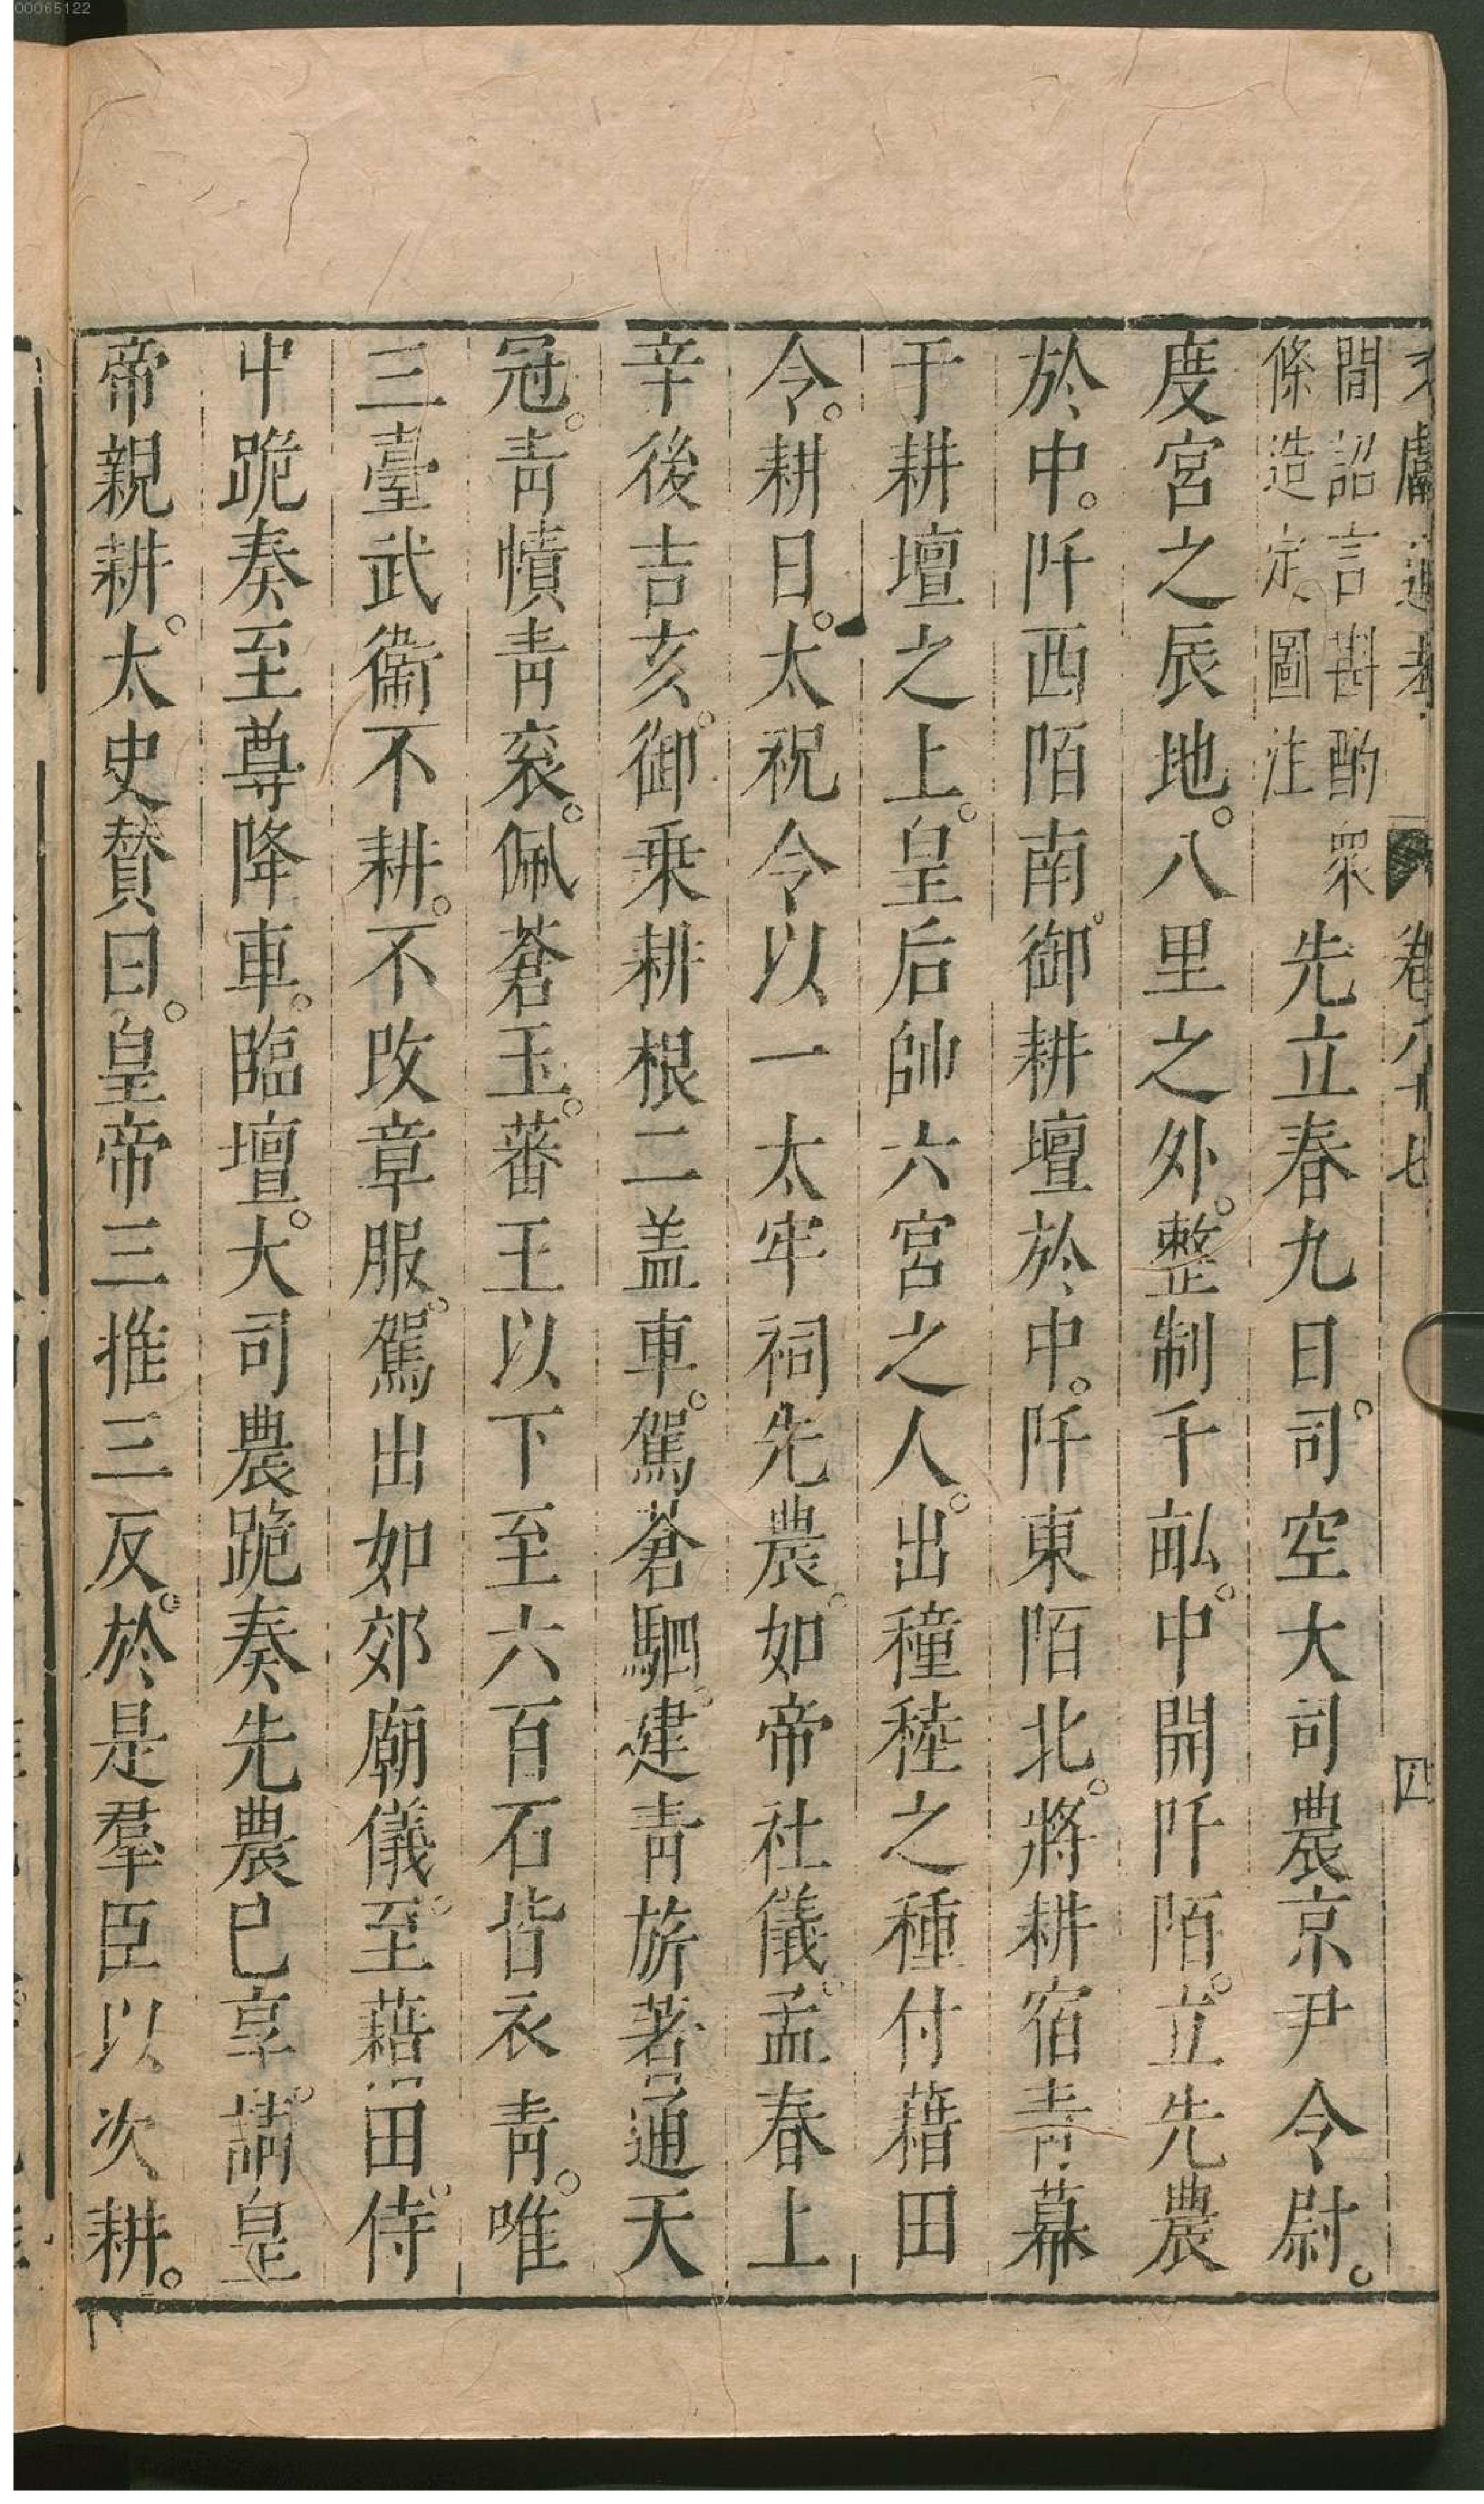 00065122
文獻通考 卷八十七 四
間詔言斟酌衆
條造定圖注
先立春九日。司空大司農京尹令尉。
度宮之辰地。八里之外。整制千畝。中開阡陌。立先農
於中。阡西陌南。御耕壇於中。阡東陌北。將耕宿靑幕
于耕壇之上。皇后帥六宮之人。出穜稑之種付藉田
令。耕日。太祝令以一太牢祠先農。如帝社儀。孟春上
辛後吉亥。御乗耕根三盖車。駕蒼駟。建靑旂。著通天
冠。靑幘靑衮。佩蒼玉。蕃王以下至六百石皆衣靑。唯
三臺武衞不耕。不改章服。駕出如郊廟儀。至藉田。侍
中跪奏至尊降車。臨壇。大司農跪奏先農已享。請皇
帝親耕。太史賛曰。皇帝三推三反。於是羣臣以次耕。